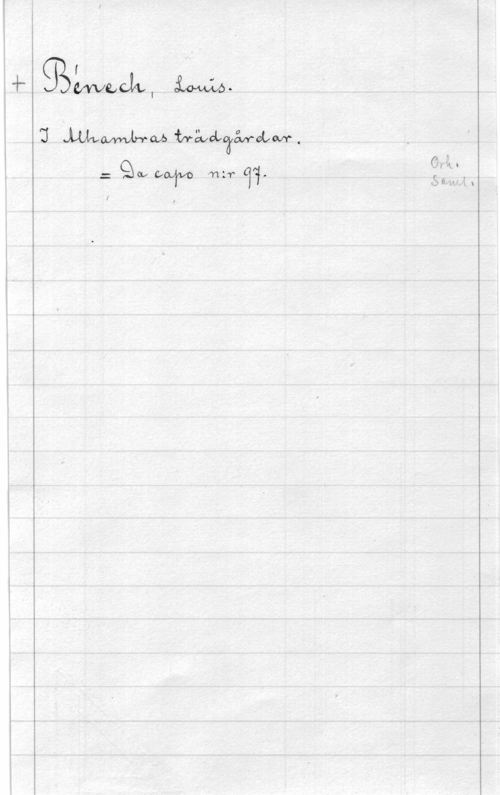 + Bénech, Louis.
I Alhambras trädgårdar.
= Da capo n:r 97.
Ork.
Saml.